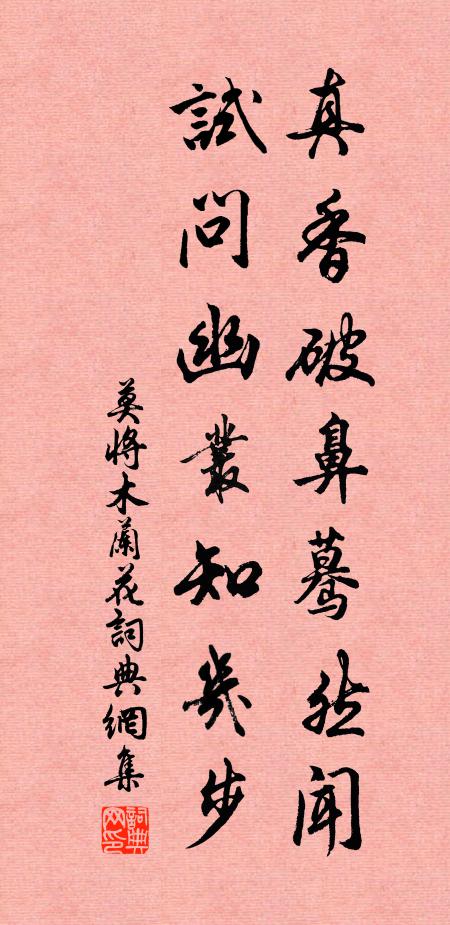 真香破鼻驀然闻
試问幽叢知幾步
莫將木蘭花詞典網集
詞典网印